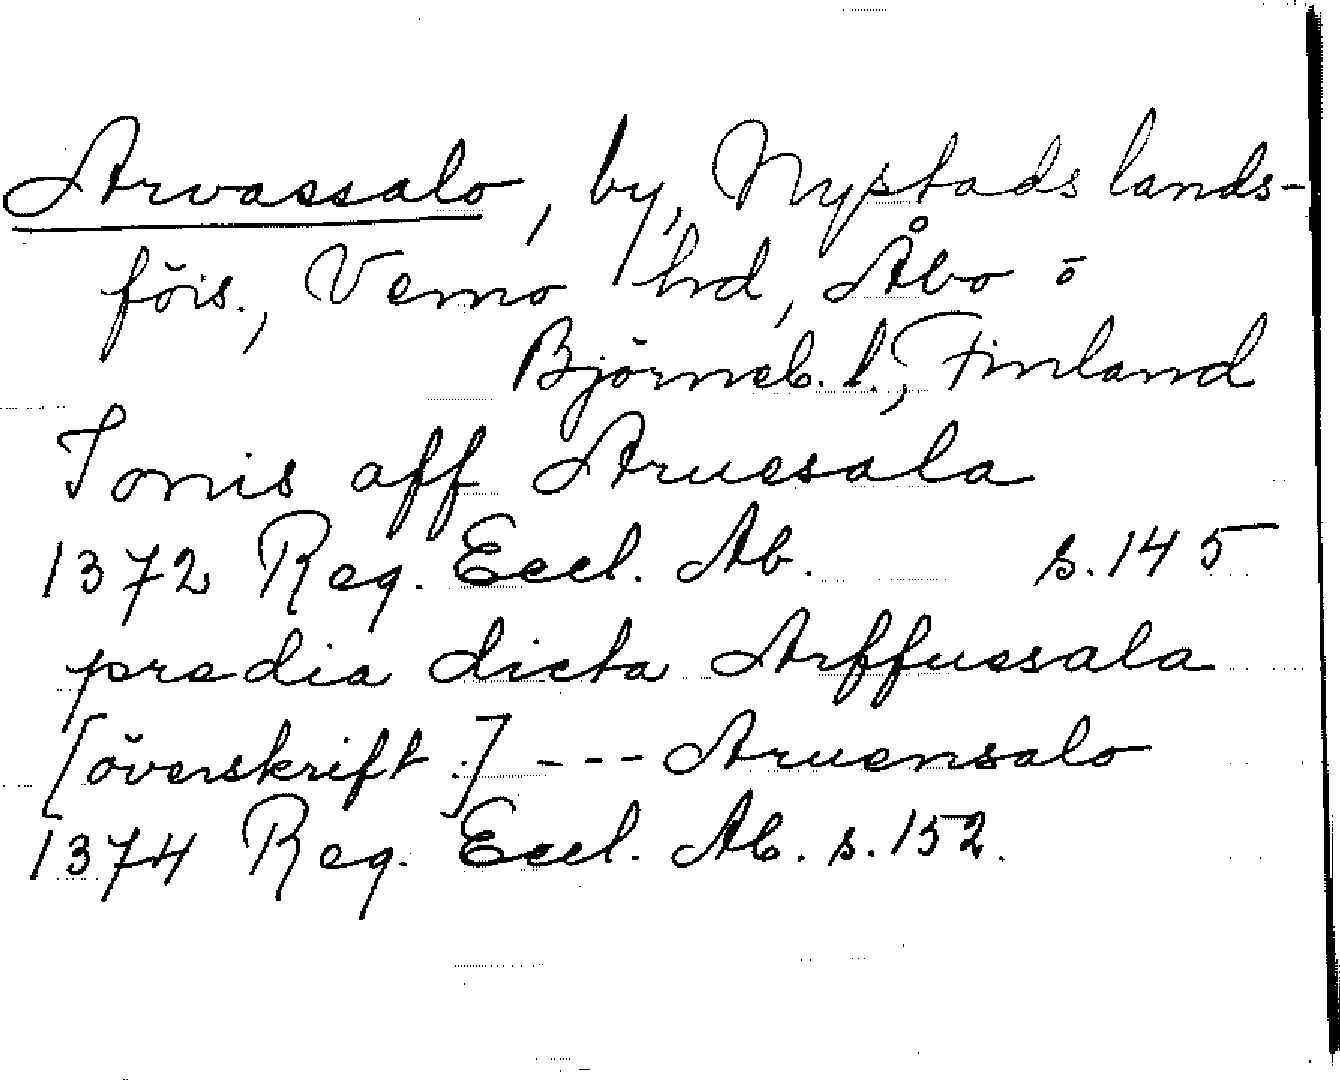 Arvassalo, by, Nystads lands-
förs., Vemo hd, Åbo o
Björneb. l., Finland
Jonis aff Aruesala
1372 Reg. Eccl. Ab. s. 145
predia dicta Arffuesala
[överskrift:] --- Aruensalo
1374 Reg. Eccl. Ab. s. 152.